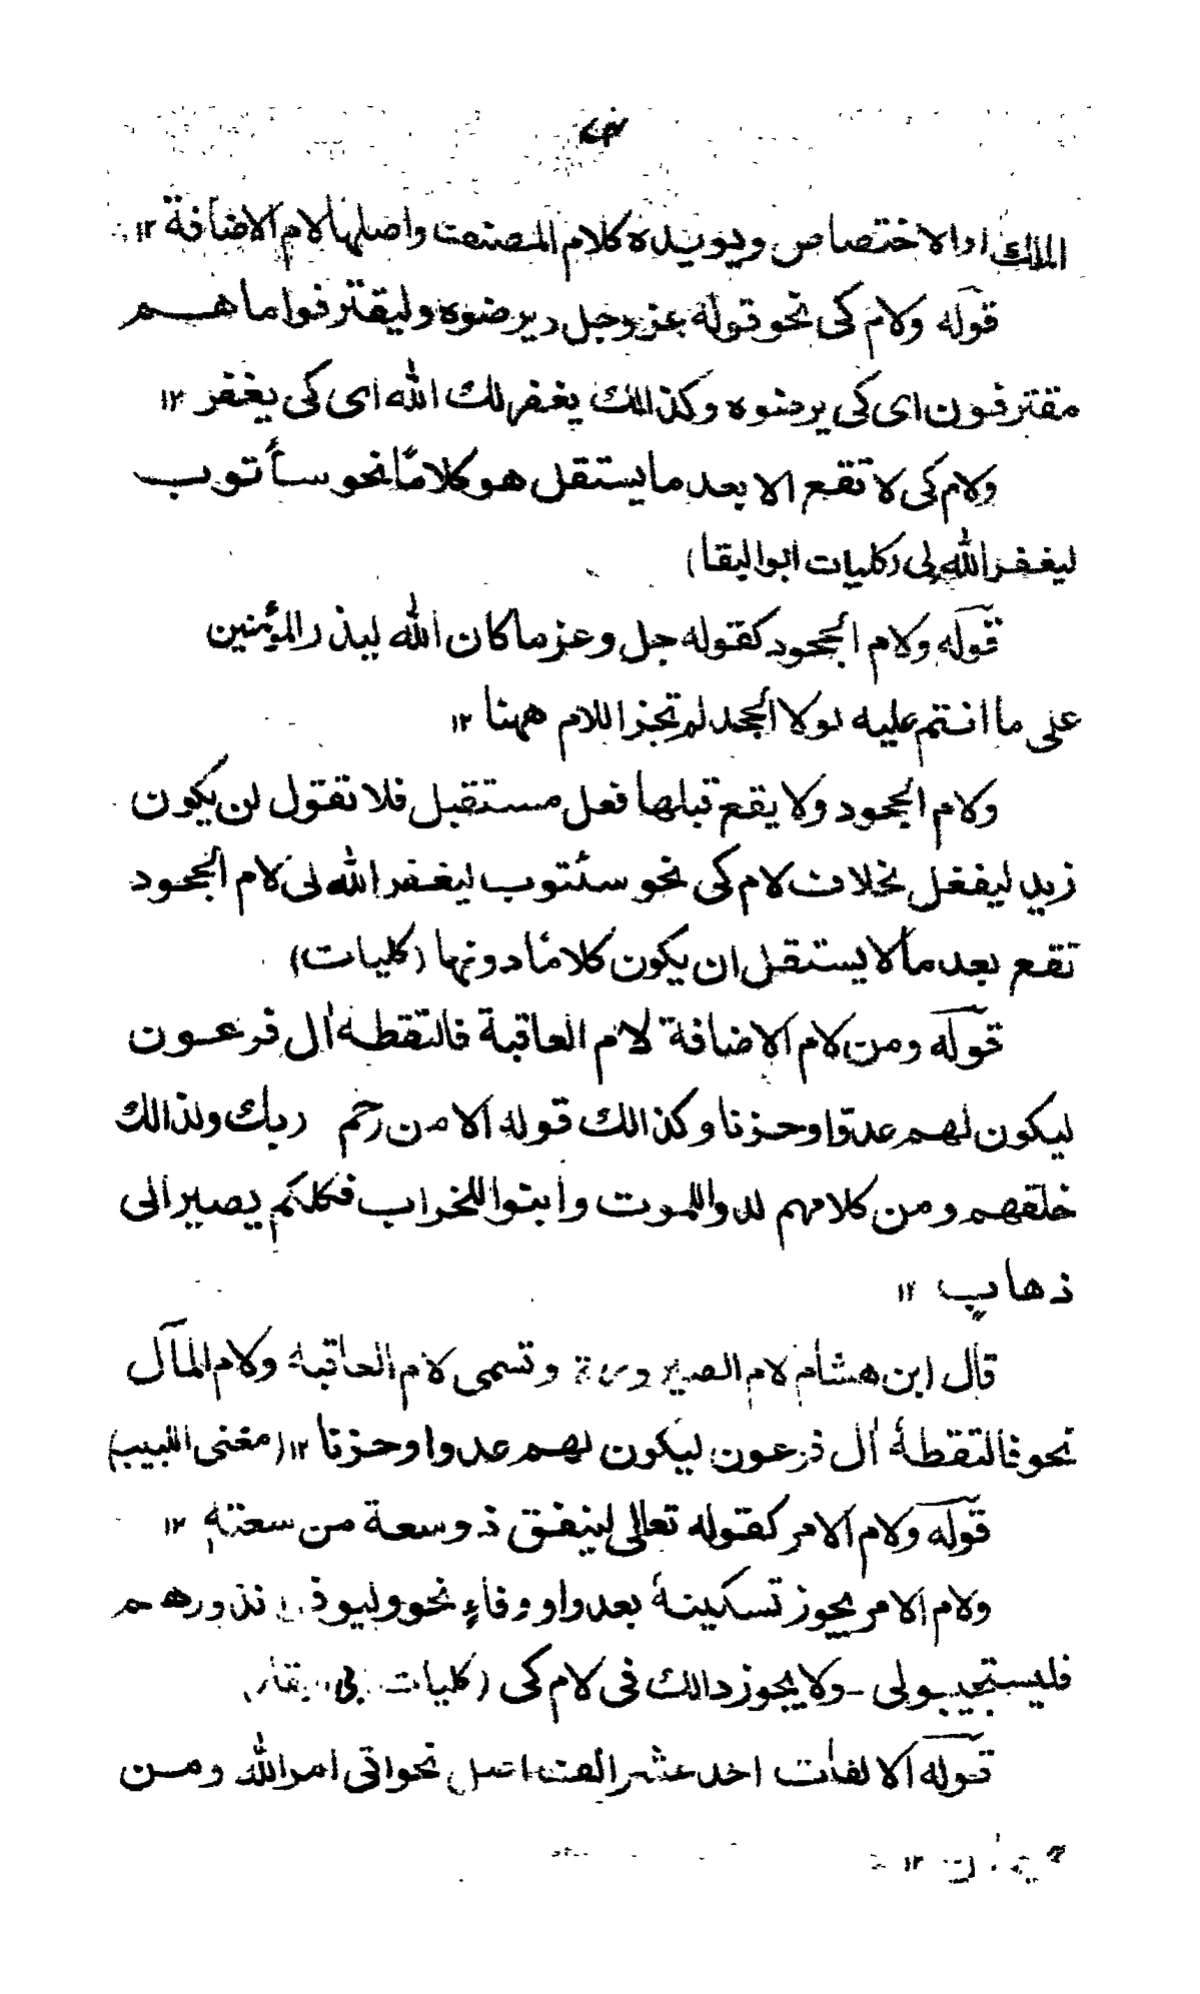 الملك او الاختصاص ويويده كلام المصنف واصلها لام الاضافة ۱۲
قوله ولام كى نحو قوله عز وجل ليرضوه وليقترفوا ما هم
مقترفون اى كى يرضوه وكذالك يغفر لك الله اى كى يغفر ۱۲
ولام كى لا تقع الا بعد ما يستقل هو كلامًا نحو سأتوب
ليغفر الله لى (كليات ابو البقا)
قوله ولام الجحود كقوله جل وعز ما كان الله ليذر المؤمنين
على ما انتم عليه لولا الجحد لم تجز اللام ههنا ۱۲
ولام الجحود ولا يقع قبلها فعل مستقبل فلا تقول لن يكون
زيد ليفعل بخلاف لام كى نحو سئتوب ليغفر الله لى لام الجحود
تقع بعد ما لا يستقل ان يكون كلامًا دونها (كليات)
قوله ومن لام الاضافة لام العاقبة فالتقطه اٰل فرعون
ليكون لهم عدوًا وحزنا وكذالك قوله الا من رحم ربك ولذالك
خلقهم ومن كلامهم لدوا للموت وابنوا للخراب فكلكم يصير الى
ذهاب ۱۲
قال ابن هشام لام الصيرورة وتسمى لام العاقبة ولام المآل
نحو فالتقطهٗ اٰل فرعون ليكون لهم عدوا وحزنا ۱۲ (مغنى اللبيب)
قوله ولام الامر كقوله تعالى لينفق ذو سعة من سعته ۱۲
ولام الامر يجوز تسكينهٗ بعد واو وفاءٍ نحو وليوفوا نذورهم
فليستجيبو لى - ولا يجوز دالك فى لام كى (كليات ابى البقاء)
قوله الالفات احد عشر الف اصل نحو اتى امر الله ومن
۱۲